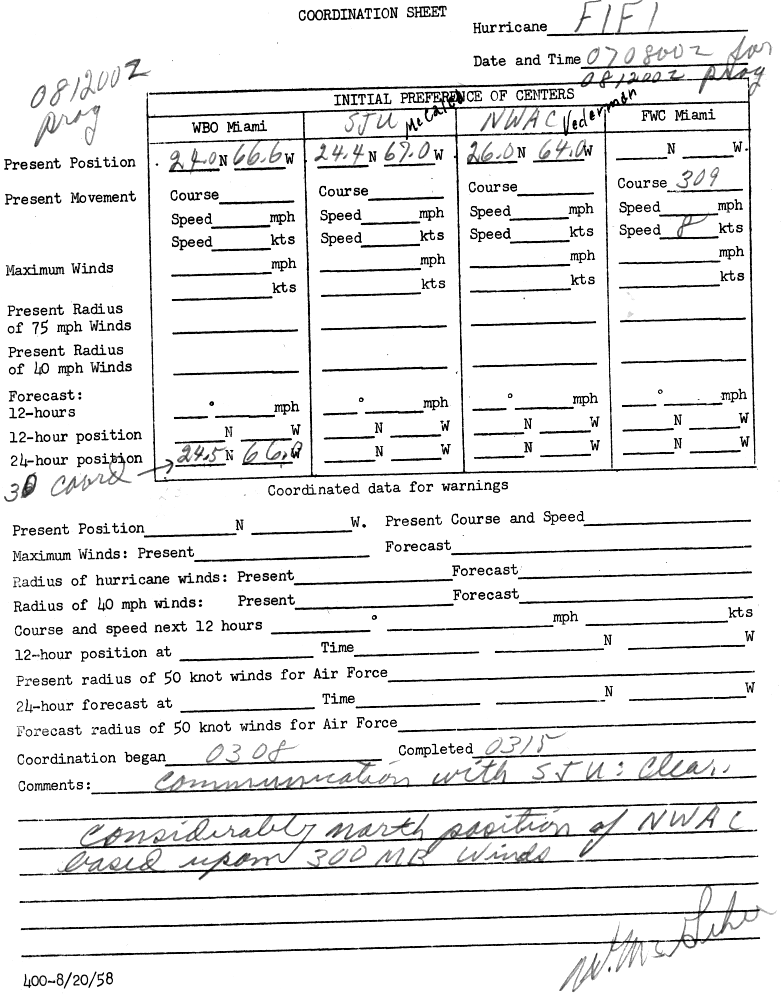 COORDINATION SHEET
Hurricane FIFI
Date and Time 070800Z for
081200Z prog
081200Z
prog
INITIAL PREFERENCE OF CENTERS
WBO Miami SJU NWAC Vederman FWC Miami
Present Position 24.0 N 66.6 W 24.4 N 67.0 W 26.0 N 64.0 W N W.
Present Movement Course Course Course Course 309
Speed mph Speed mph Speed mph Speed mph
Speed kts Speed kts Speed kts Speed 8 kts
Maximum Winds mph mph mph mph
kts kts kts kts
Present Radius
of 75 mph Winds
Present Radius
of 40 mph Winds
Forecast:
12-hours ° mph ° mph ° mph ° mph
12-hour position N W N W N W N W
24-hour position 24.5 N 66.0 W N W N W N W
30 coord →
Coordinated data for warnings
Present Position N W. Present Course and Speed
Maximum Winds: Present Forecast
Radius of hurricane winds: Present Forecast
Radius of 40 mph winds: Present Forecast
Course and speed next 12 hours ° mph kts
12-hour position at Time N W
Present radius of 50 knot winds for Air Force
24-hour forecast at Time N W
Forecast radius of 50 knot winds for Air Force
Coordination began 0308 Completed 0315
Comments: Communication with SJU: Clear.
Considerably north position of NWAC
based upon 300 MB Winds
400-8/20/58